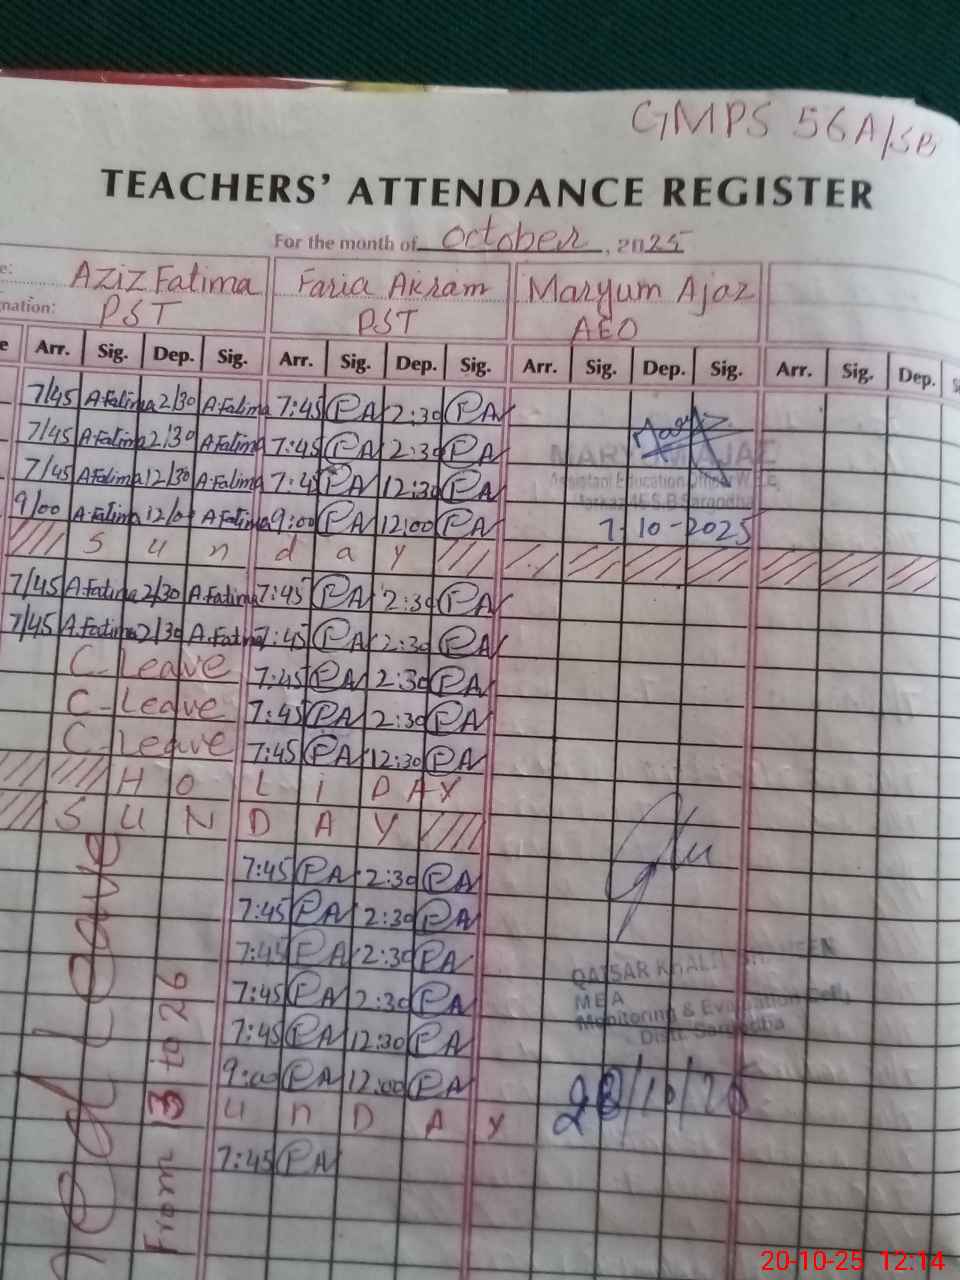 GMPS 56A/SB
TEACHERS' ATTENDANCE REGISTER
For the month of October, 2025
e: Aziz Fatima Faria Akram Maryum Ajaz
nation: PST PST AEO
e Arr. Sig. Dep. Sig. Arr. Sig. Dep. Sig. Arr. Sig. Dep. Sig. Arr. Sig. Dep. S
7/45 A.Fatima 2/30 A.Fatima 7:45 PA 2:30 PA
7/45 A.Fatima 2/30 A.Fatima 7:45 PA 2:30 PA
MARYUM AJAZ
7/45 A.Fatima 12/30 A.Fatima 7:45 PA 12:30 PA
Assistant Education Officer W.E.E,
9/00 A.Fatima 12/00 A.Fatima 9:00 PA 12:00 PA 7-10-2025
Sunday
7/45 A.Fatima 2/30 A.Fatima 7:45 PA 2:30 PA
7/45 A.Fatima 2/30 A.Fatima 7:45 PA 2:30 PA
C-Leave 7:45 PA 2:30 PA
C-Leave 7:45 PA 2:30 PA
C-Leave 7:45 PA 12:30 PA
HOLiDAY
SUNDAY
7:45 PA 2:30 PA
7:45 PA 2:30 PA
7:45 PA 2:30 PA
QAISAR
7:45 PA 2:30 PA
MEA
7:45 PA 12:30 PA
Monitoring & Evaluation Cell,
Distt. Sargodha
9:00 PA 12:00 PA
20/10/25
unDAY
7:45 PA
Leave
From 13 to 26
20-10-25 12:14